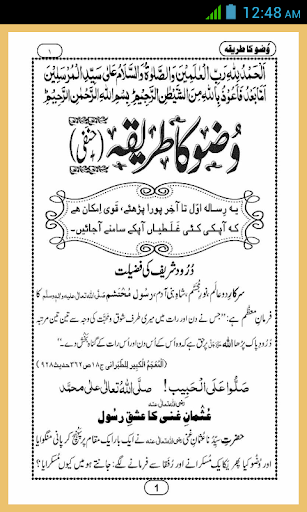 12:48 AM
وُضو کا طریقہ
۱
اَلْحَمْدُ لِلّٰهِ رَبِّ الْعٰلَمِیْنَ وَالصَّلٰوةُ وَالسَّلَامُ عَلٰی سَیِّدِ الْمُرْسَلِیْنَ
اَمَّا بَعْدُ فَاَعُوْذُ بِاللّٰهِ مِنَ الشَّیْطٰنِ الرَّجِیْمِ بِسْمِ اللّٰهِ الرَّحْمٰنِ الرَّحِیْمِ
وُضو کا طریقہ (حنفی)
یہ رسالہ اوّل تا آخر پورا پڑھئے، قوی اِمکان ہے
کہ آپکی کئی غَلَطیاں آپکے سامنے آجائیں۔
دُرُود شریف کی فضیلت
سرکارِ دو عالم، نورِ مُجَسَّم، شاہِ بنی آدم، رسولِ مُحتَشَم صلَّی اللہ تعالٰی علیہ واٰلہٖ وسلَّم کا
فرمانِ معظّم ہے: ’’جس نے دن اور رات میں میری طرف شوق و محبَّت کی وجہ سے تین تین مرتبہ
دُرُودِ پاک پڑھا اللہ پر حق ہے کہ وہ اُس کے اُس دن اور اُس رات کے گناہ بخش دے۔‘‘
(اَلْمُعْجَمُ الْکَبِیْر لِلطَّبَرانِی ج۱۸ ص۳۶۲ حدیث۹۲۸)
صَلُّوْا عَلَی الْحَبِیْب! صلَّی اللهُ تعالٰی علٰی محمَّد
عُثمانِ غنی کا عشقِ رسول رضی اللہ تعالٰی عنہ
حضرتِ سیِّدُنا عثمانِ غنی رضی اللہ تعالٰی عنہ نے ایک بار ایک مقام پر پہنچ کر پانی منگوایا
اور وُضو کیا پھر یکایک مُسکرانے اور رُفقا سے فرمانے لگے: جانتے ہو میں کیوں مُسکرایا؟
1